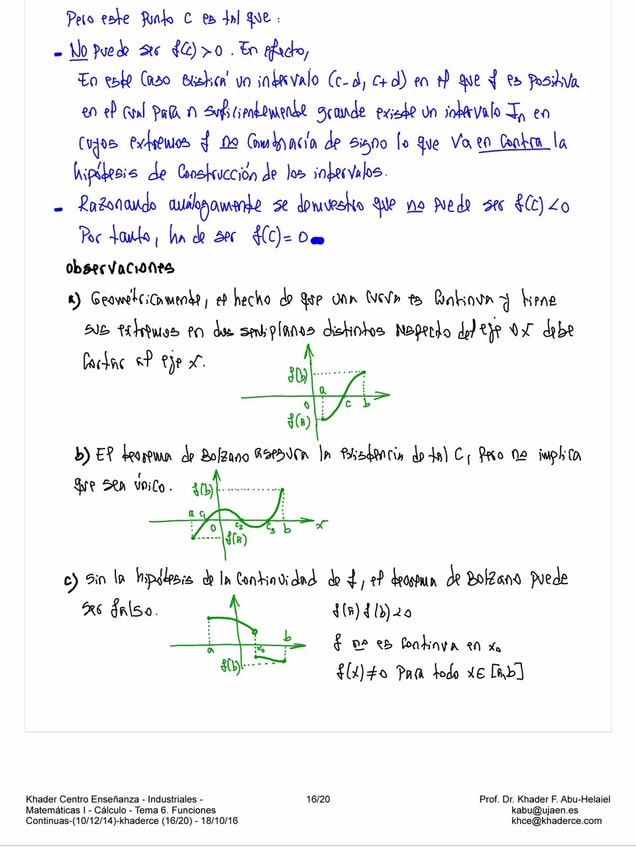 Pero este punto c es tal que:
- No puede ser f(c)>0. En efecto,
En este caso existiría un intervalo (c-d, c+d) en el que f es positiva
en el cual para n suficientemente grande existe un intervalo In en
cuyos extremos f no cambiaría de signo lo que va en contra la
hipótesis de construcción de los intervalos.
- Razonando análogamente se demuestra que no puede ser f(c)<0
Por tanto, ha de ser f(c)=0
observaciones
a) Geométricamente, el hecho de que una curva es continua y tiene
sus extremos en dos semiplanos distintos respecto del eje OX debe
cortar al eje x.
f(b)
a
0
c
b
f(a)
b) El teorema de Bolzano asegura la existencia de tal c, pero no implica
que sea único.
f(b)
a c1
0 c2 c3 b x
f(a)
c) Sin la hipótesis de la continuidad de f, el teorema de Bolzano puede
ser falso.
f(a) f(b)<0
f no es continua en x0
f(x)≠0 para todo x∈[a,b]
a
x0
b
f(b)
Khader Centro Enseñanza - Industriales -
Matemáticas I - Cálculo - Tema 6. Funciones
Continuas-(10/12/14)-khaderce (16/20) - 18/10/16
16/20
Prof. Dr. Khader F. Abu-Helaiel
kabu@ujaen.es
khce@khaderce.com